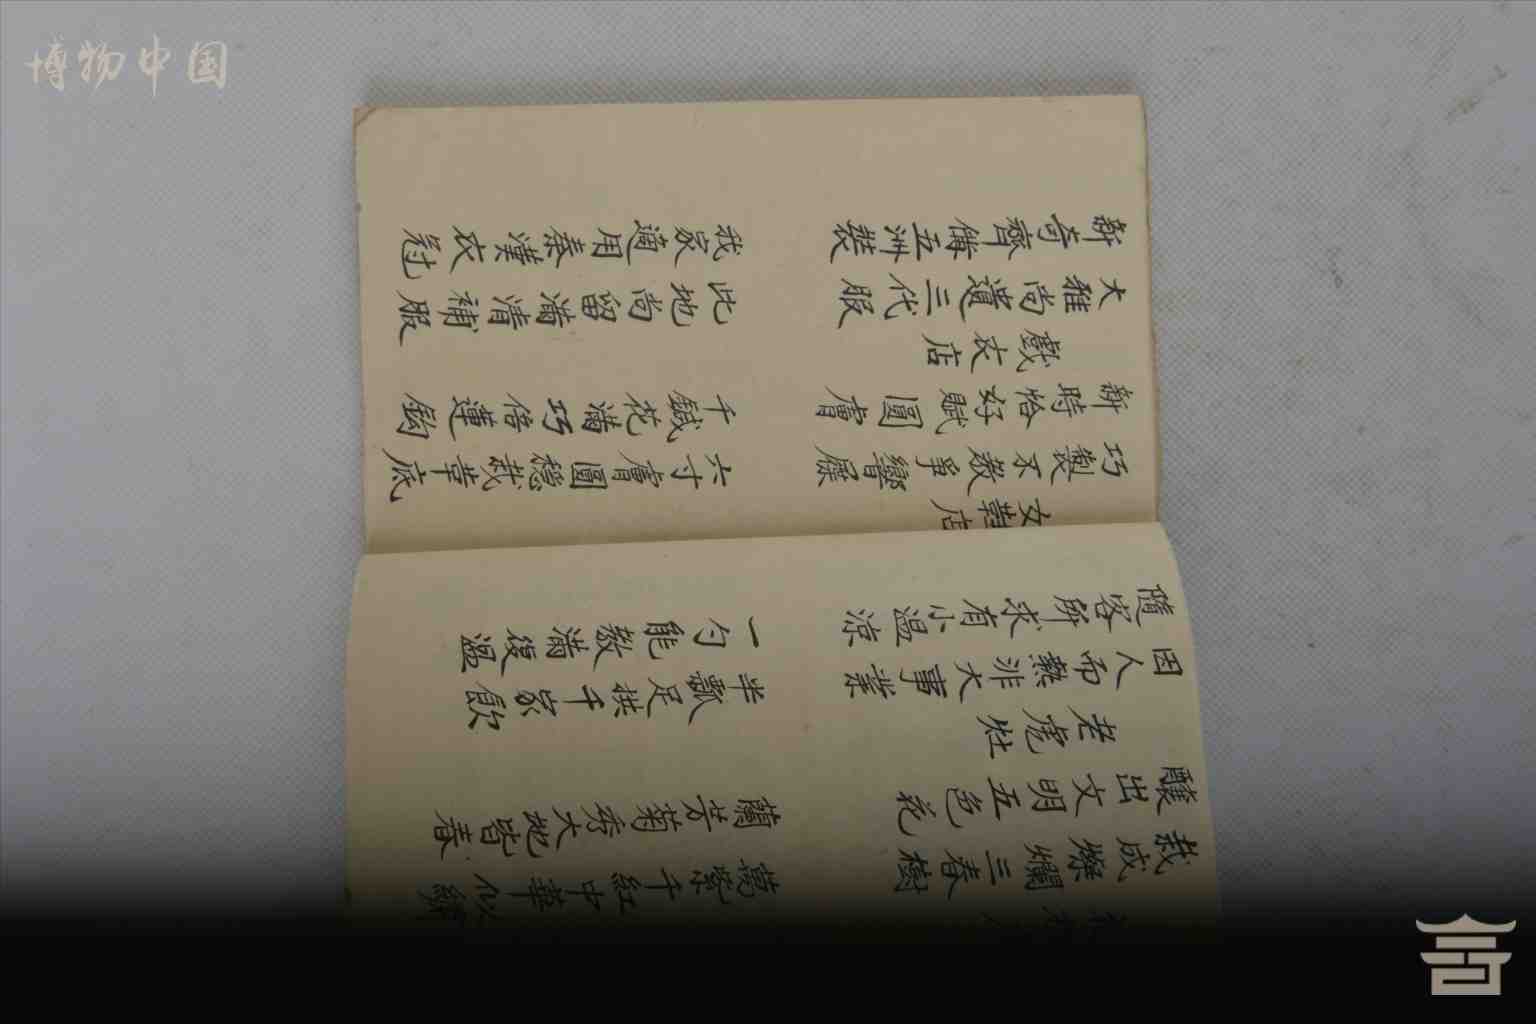 博物中国
栽成燦爛三春樹
釀出文明五色花
萬紫千紅中華似繡
蘭芳菊秀大地皆春
老虎灶
因人而熱非大事業
隨客所求有小溫涼
半瓢足拱千家飲
一勺能教滿復溫
女鞋店
巧製不教爭響屧
新時恰好賦圓膚
六寸膚圓穩裁革底
千鍼花滿巧倍蓮鉤
戲衣店
大雅尚遺三代服
新奇齊備五洲裝
此地尚留滿清補服
我家適用秦漢衣冠